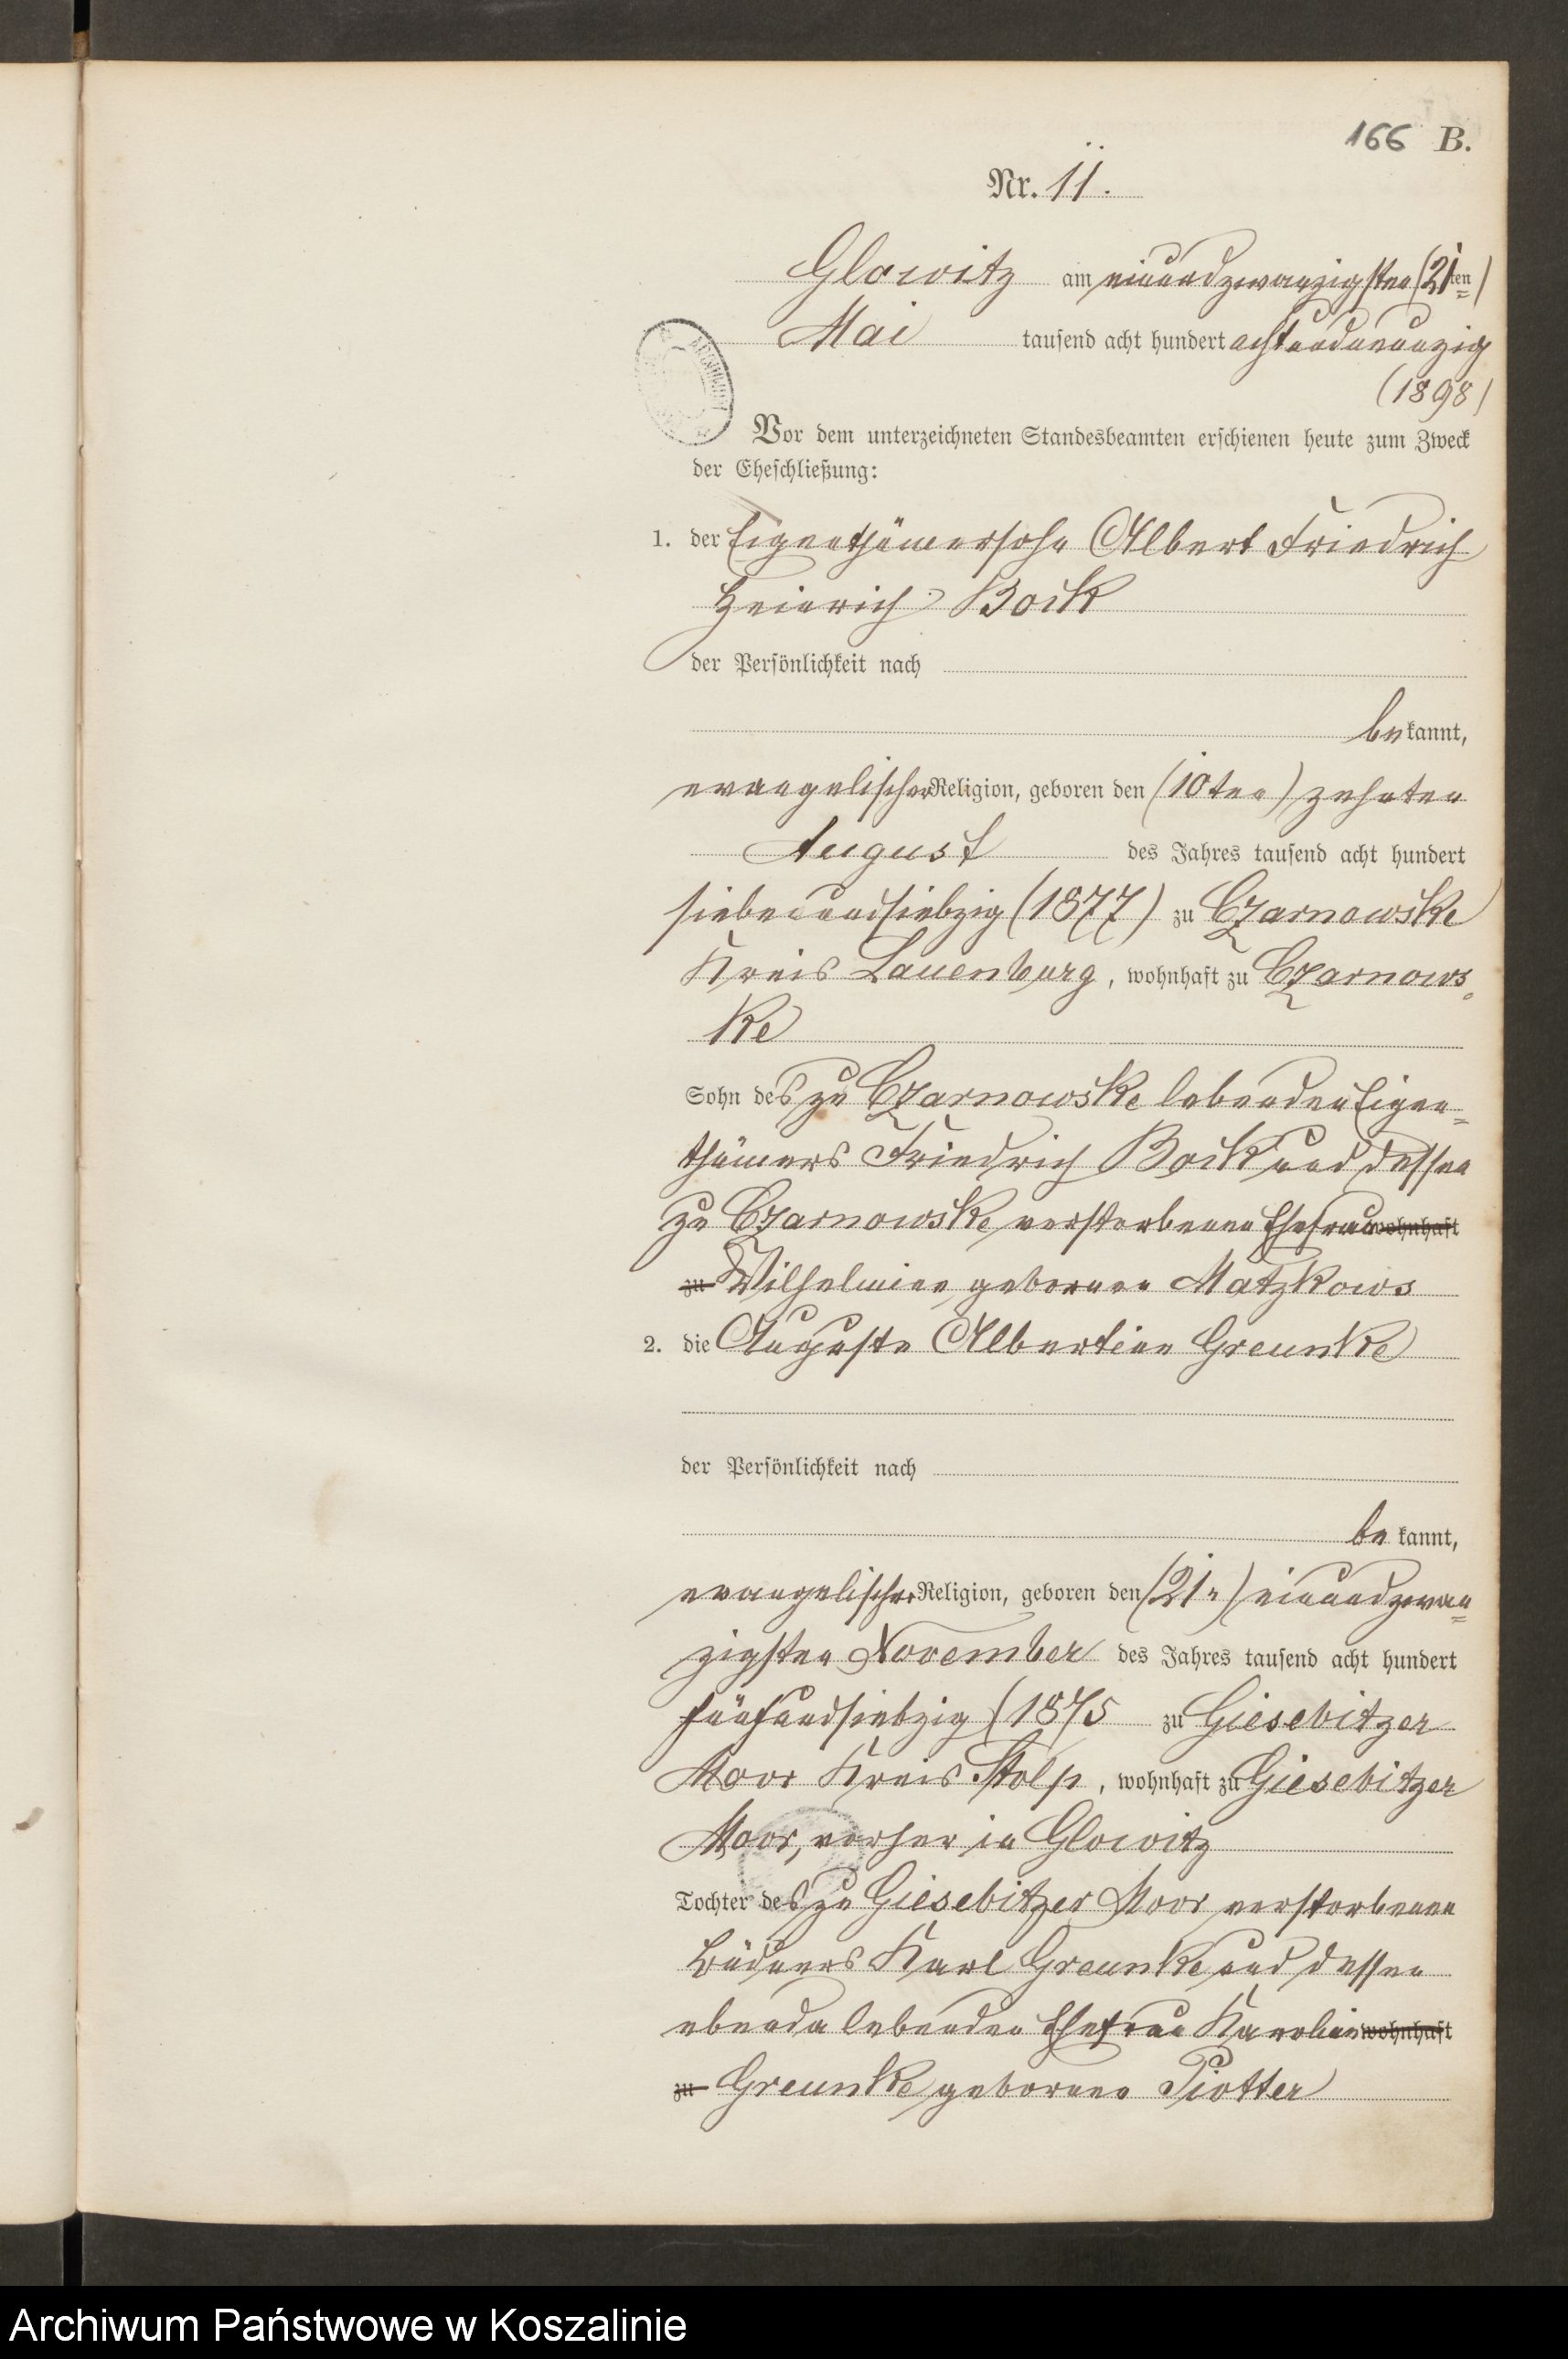 166 B.
Nr. 11.
Glowitz am einundzwanzigsten (21ten)
Mai tausend acht hundert achtundneunzig
(1898)
Vor dem unterzeichneten Standesbeamten erschienen heute zum Zweck
der Eheschließung:
1. der Eigenthümersohn Albert Friedrich
Heinrich Bock
der Persönlichkeit nach
bekannt,
evangelischer Religion, geboren den (10ten) zehnten
August des Jahres tausend acht hundert
siebenundsiebzig (1877) zu Czarnowske
Kreis Lauenburg, wohnhaft zu Czarnows
ke
Sohn des zu Czarnowske lebenden Eigen=
thümers Friedrich Bock und dessen
zu Czarnowske verstorbenen Ehefrau wohnhaft
zu Wilhelmine geborenen Matzkows
2. die Auguste Albertine Greunke
der Persönlichkeit nach
be kannt,
evangelischer Religion, geboren den (21n) einundzwan=
zigsten November des Jahres tausend acht hundert
fünfundsiebzig (1875 zu Giesebitzer
Moor Kreis Stolp, wohnhaft zu Giesebitzer
Moor, vorher in Glowitz
Tochter des zu Giesebitzer Moor verstorbenen
Büdners Karl Greunke und dessen
ebenda lebenden Ehefrau Karoline wohnhaft
zu Greunke geborenen Piotter
Archiwum Państwowe w Koszalinie